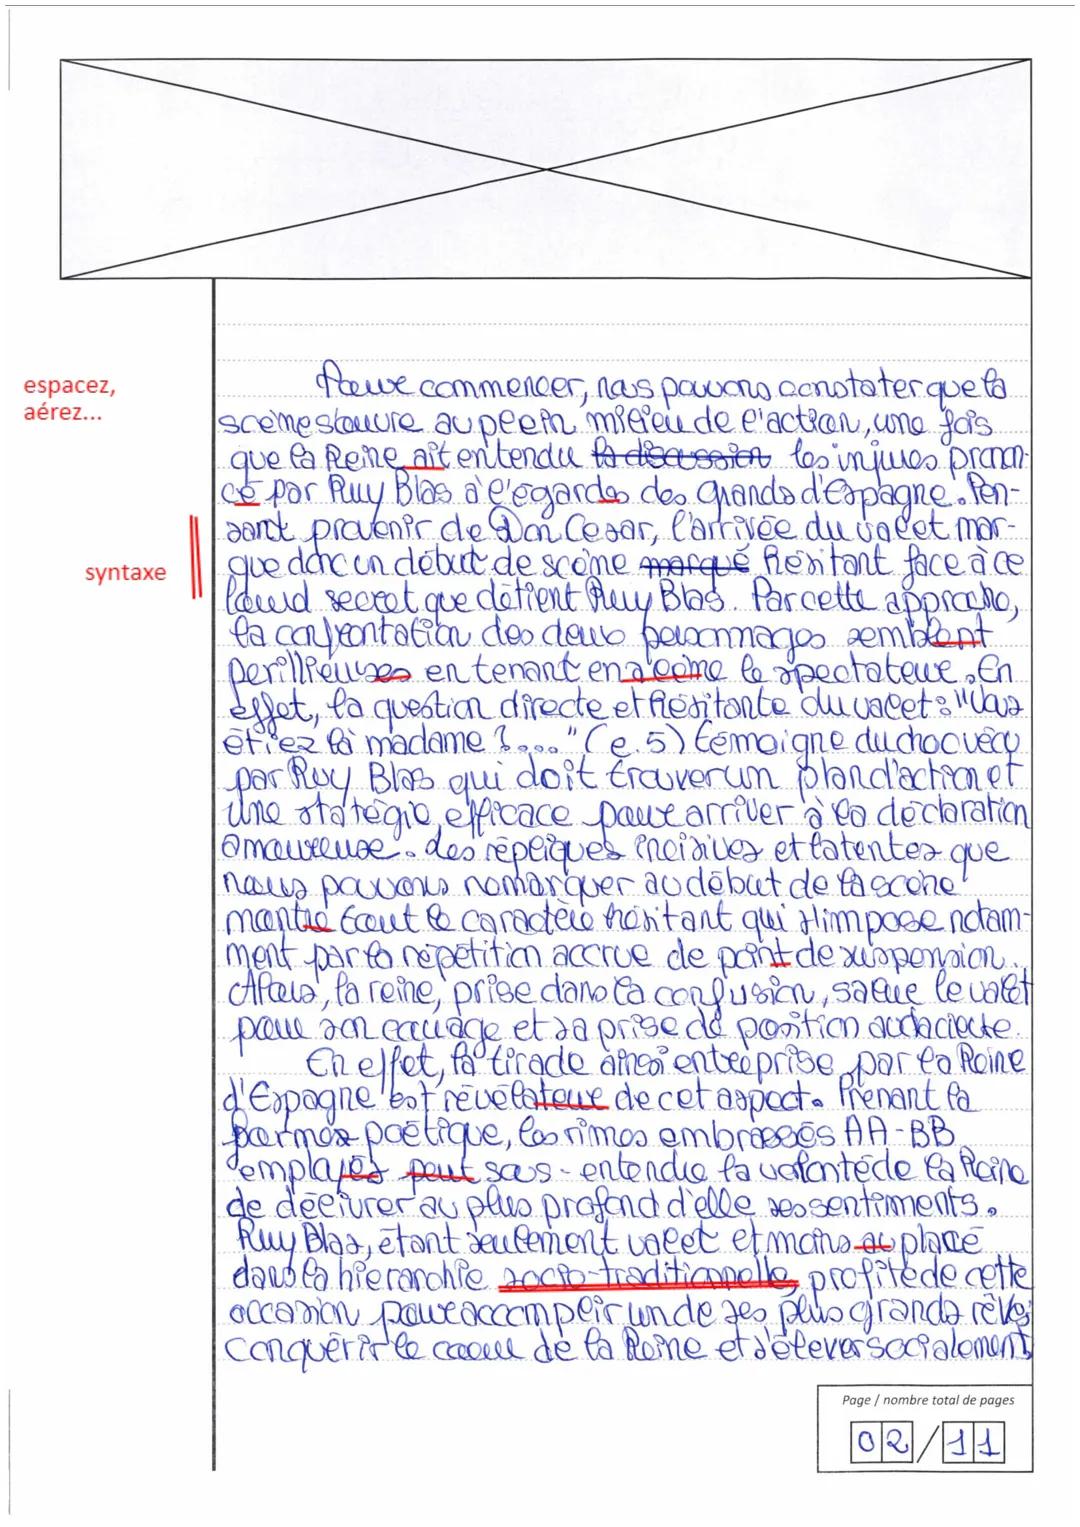 espacez,
aérez...
syntaxe
Pour commencer, nous pouvons constater que la
scème s'ouvre au plein milieu de l'action, une fois
que la Reine ait entendu la discussion les injures pronon-
cé par Ruy Blas à l'égardes des grands d'Espagne. Pen-
sant provenir de Don Cesar, l'arrivée du valet mar-
que donc un début de scène marqué hésitant face à ce
lourd secret que détient Ruy Blas. Par cette approche,
la confrontation des deux personnages semblent
perillieuses en tenant en aleine le spectateur. En
effet, la question directe et hésitante du valet : "Vous
étiez là madame ?...." (l.5) témoigne du choc vécu
par Ruy Blas qui doit trouver un plan d'action et
une statégie efficace pour arriver à la déclaration
amoureuse. des répliques incisives et latentes que
nous pouvons remarquer au début de la scène
montre tout le caractère hésitant qui s'impose notam-
ment par la répétition accrue de point de suspension.
Alors, la reine, prise dans la confusion, salue le valet
pour son courage et sa prise de position audacieute.
En effet, la tirade ainsi entreprise par la Reine
d'Espagne est révélateur de cet aspect. Prenant la
formes poètique, les rimes embrassés AA-BB
employés peut sous-entendre la volonté de la Reine
de délivrer au plus profond d'elle ses sentiments.
Ruy Blas, étant seulement valet et moins au placé
dans la hierarchie socio-traditionnelle, profite de cette
occasion pour accomplir un de ses plus grands rêves
conquérir le coeur de la Reine et s'élever socialement,
Page / nombre total de pages
02/11